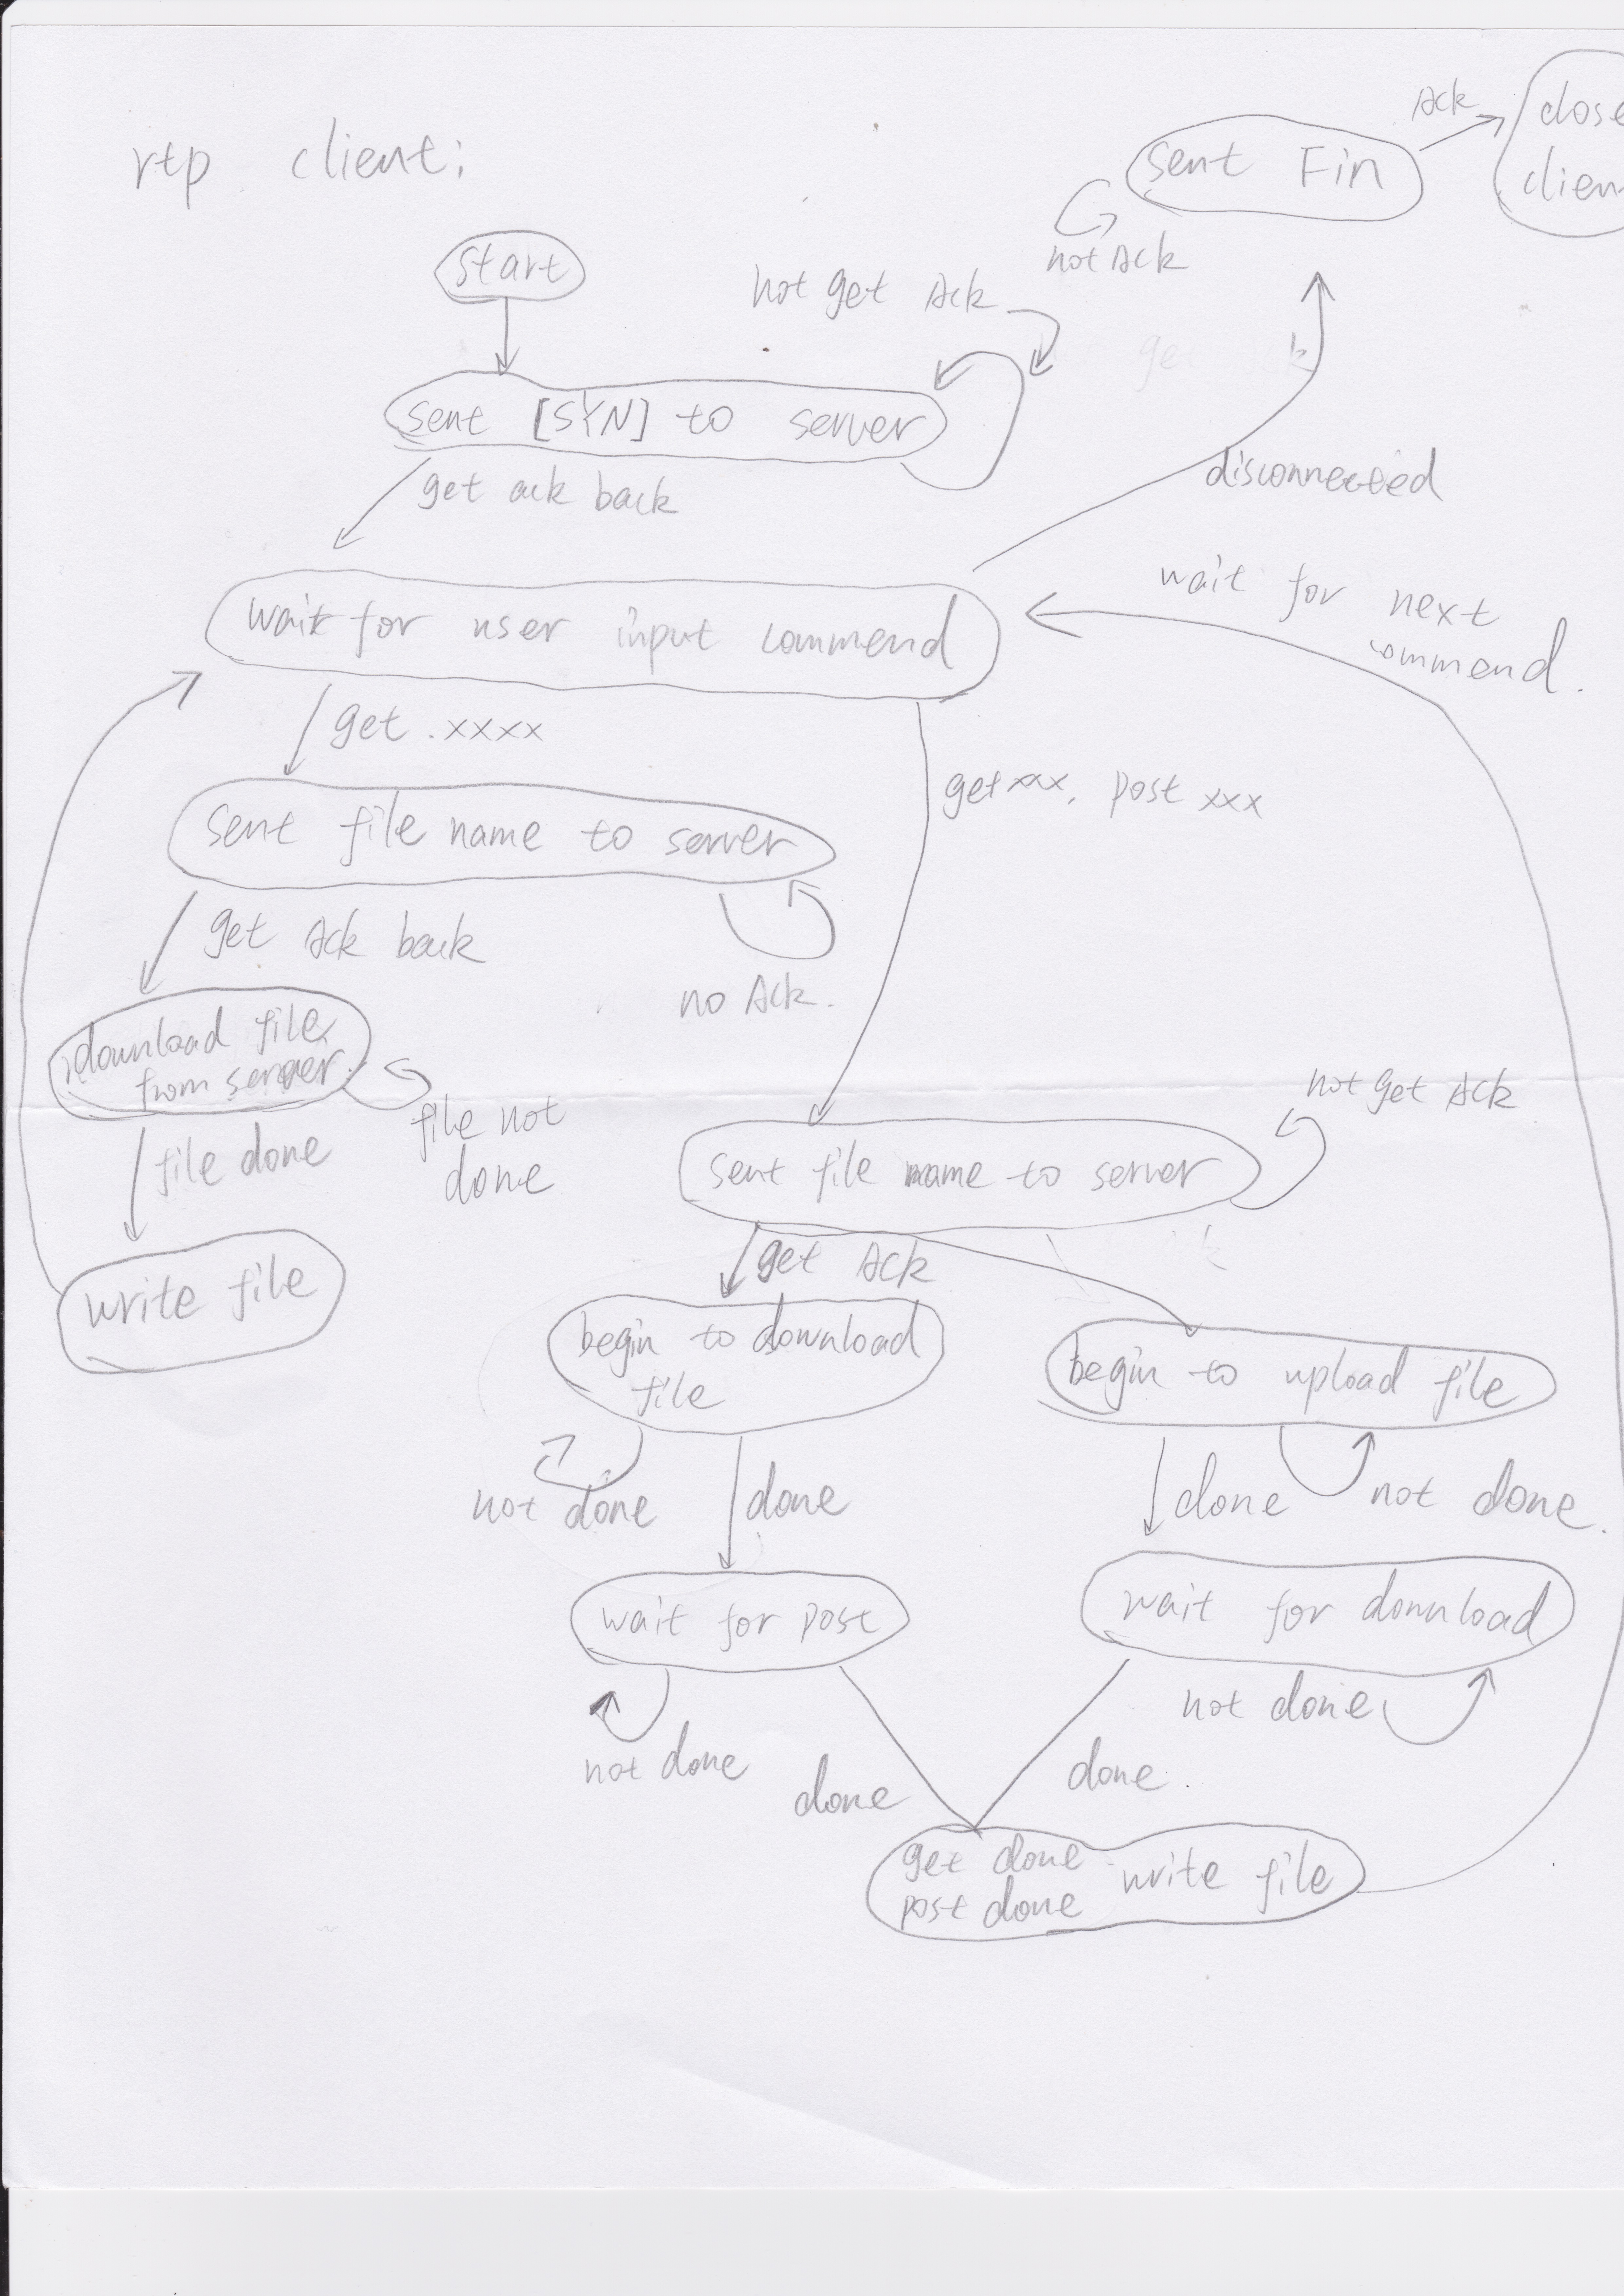 rtp client:
Ack
close
client
sent Fin
not Ack
start
not get Ack
sent [SYN] to server
get ack back
disconnected
wait for next
commend.
wait for user input commend
get .xxxx
get xxx, post xxx
sent file name to server
get Ack back
no Ack.
download file
from server
file not
done
file done
not get Ack
sent file name to server
write file
get Ack
begin to download
file
begin to upload file
not done
done
done
not done.
wait for post
wait for download
not done
not done
done
done.
get done
post done
write file